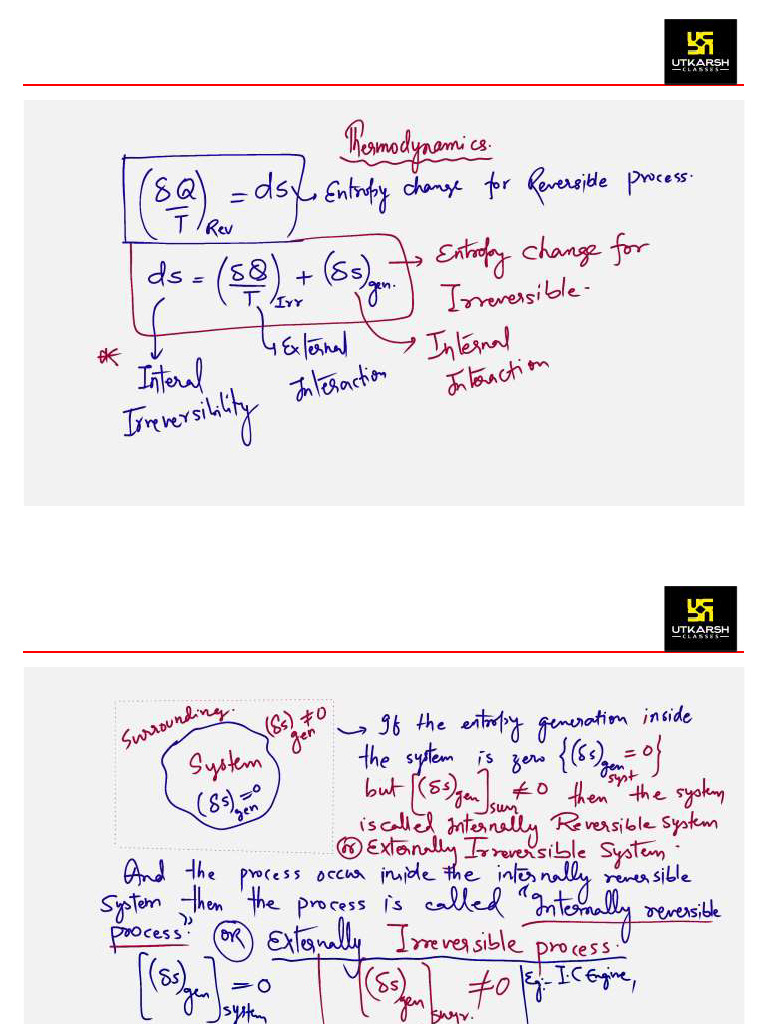 UTKARSH
CLASSES
Thermodynamics.
(δQ/T)Rev = ds → Entropy change for Reversible process.
ds = (δQ/T)Irr + (δs)gen. → Entropy change for
Irreversible.
* Interal
Irreversibility
External
Interaction
Internal
Interaction
UTKARSH
CLASSES
Surrounding.
(δs)gen ≠ 0
System
(δs)gen = 0
→ If the entropy generation inside
the system is zero {(δs)gen syst = 0}
but [(δs)gen]surr ≠ 0 then the system
is called Internally Reversible System
or Externally Irreversible System.
And the process occur inside the internally reversible
System then the process is called "Internally reversible
process." OR Externally Irreversible process.
[(δs)gen]system = 0 [(δs)gen]surr. ≠ 0 Eg:- I.C Engine,